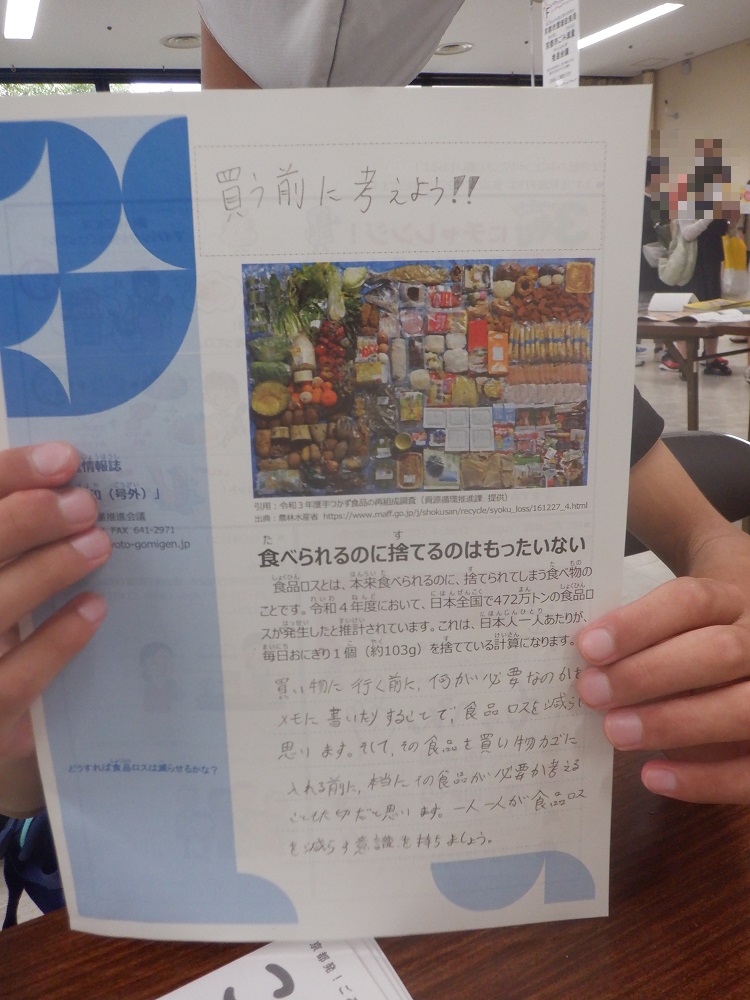 買う前に考えよう!!
引用:令和3年度手つかず食品の再組成調査(資源循環推進課 提供)
出典:農林水産省 https://www.maff.go.jp/j/shokusan/recycle/syoku_loss/161227_4.html
食べられるのに捨てるのはもったいない
食品ロスとは、本来食べられるのに、捨てられてしまう食べ物の
ことです。令和4年度において、日本全国で472万トンの食品ロ
スが発生したと推計されています。これは、日本人一人あたりが、
毎日おにぎり1個(約103g)を捨てている計算になります。
買い物に行く前に、何が必要なのかを
メモに書いたりすることで、食品ロスを減らし
思います。そして、その食品を買い物カゴに
入れる前に、本当にその食品が必要か考える
ことも大切だと思います。一人一人が食品ロス
を減らす意識を持ちましょう。
情報誌
(号外)」
推進会議
FAX 641-2971
yoto-gomigen.jp
どうすれば食品ロスは減らせるかな?